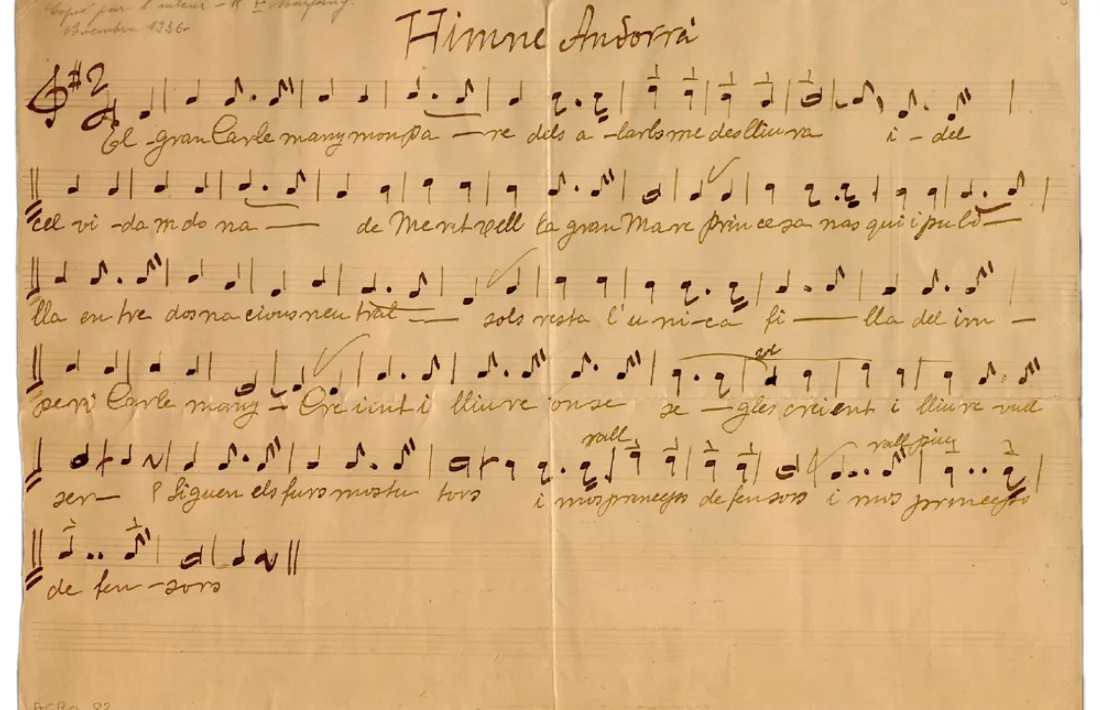 Copié par l'auteur - R.
Novembre 1936
Himne Andorrà
El gran Carle many mon pa - re dels a - larbs me deslliura i - del
cel vi - da m do na — de Meritxell la gran Mare princesa nasqui i pulo -
lla entre dos nacions neutral — sols resta l'u ni - ca fi — lla del im -
peri Carle many - Creient i lliure onse se - gles creient i lliure vull
rall. rall piu
ser - Siguen els furs mos tu tors i mos princeps defensors i mos princeps
de fen - sors